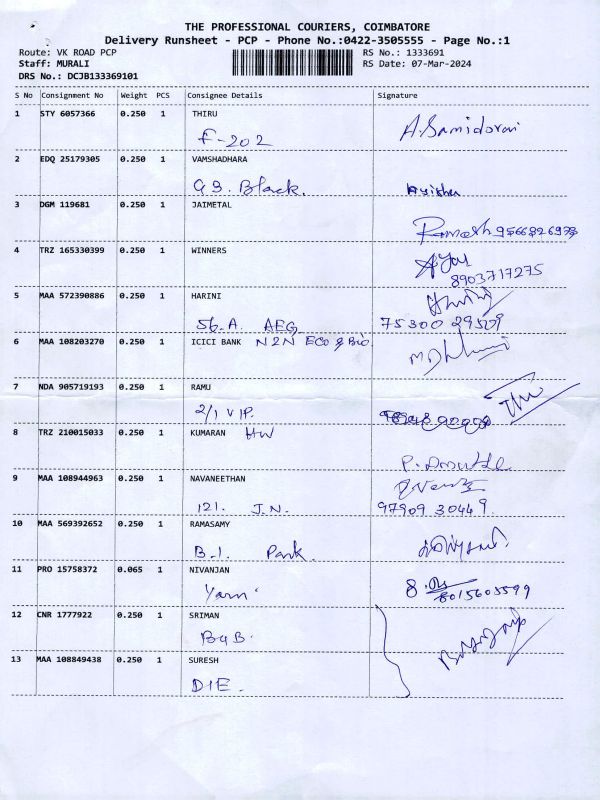 THE PROFESSIONAL COURIERS, COIMBATORE
Delivery Runsheet - PCP - Phone No.:0422-3505555 - Page No.:1
Route: VK ROAD PCP RS No.: 1333691
Staff: MURALI RS Date: 07-Mar-2024
DRS No.: DCJB133369101
S No Consignment No Weight PCS Consignee Details Signature
1 STY 6057366 0.250 1 THIRU
F-202 A. Samidorai
2 EDQ 25179305 0.250 1 VAMSHADHARA
G3. Black.
3 DGM 119681 0.250 1 JAIMETAL
Ramesh
4 TRZ 165330399 0.250 1 WINNERS
8903717275
5 MAA 572390886 0.250 1 HARINI
56. A. AEG 75300 29509
6 MAA 108203270 0.250 1 ICICI BANK N2N Eco & Bio.
7 NDA 905719193 0.250 1 RAMU
2/1 VIP.
8 TRZ 210015033 0.250 1 KUMARAN HW
9 MAA 108944963 0.250 1 NAVANEETHAN
121. J.N. 97909 30449
10 MAA 569392652 0.250 1 RAMASAMY
B-1 Park.
11 PRO 15758372 0.065 1 NIVANJAN
Yarn 8015605599
12 CNR 1777922 0.250 1 SRIMAN
B4B.
13 MAA 108849438 0.250 1 SURESH
DIE.